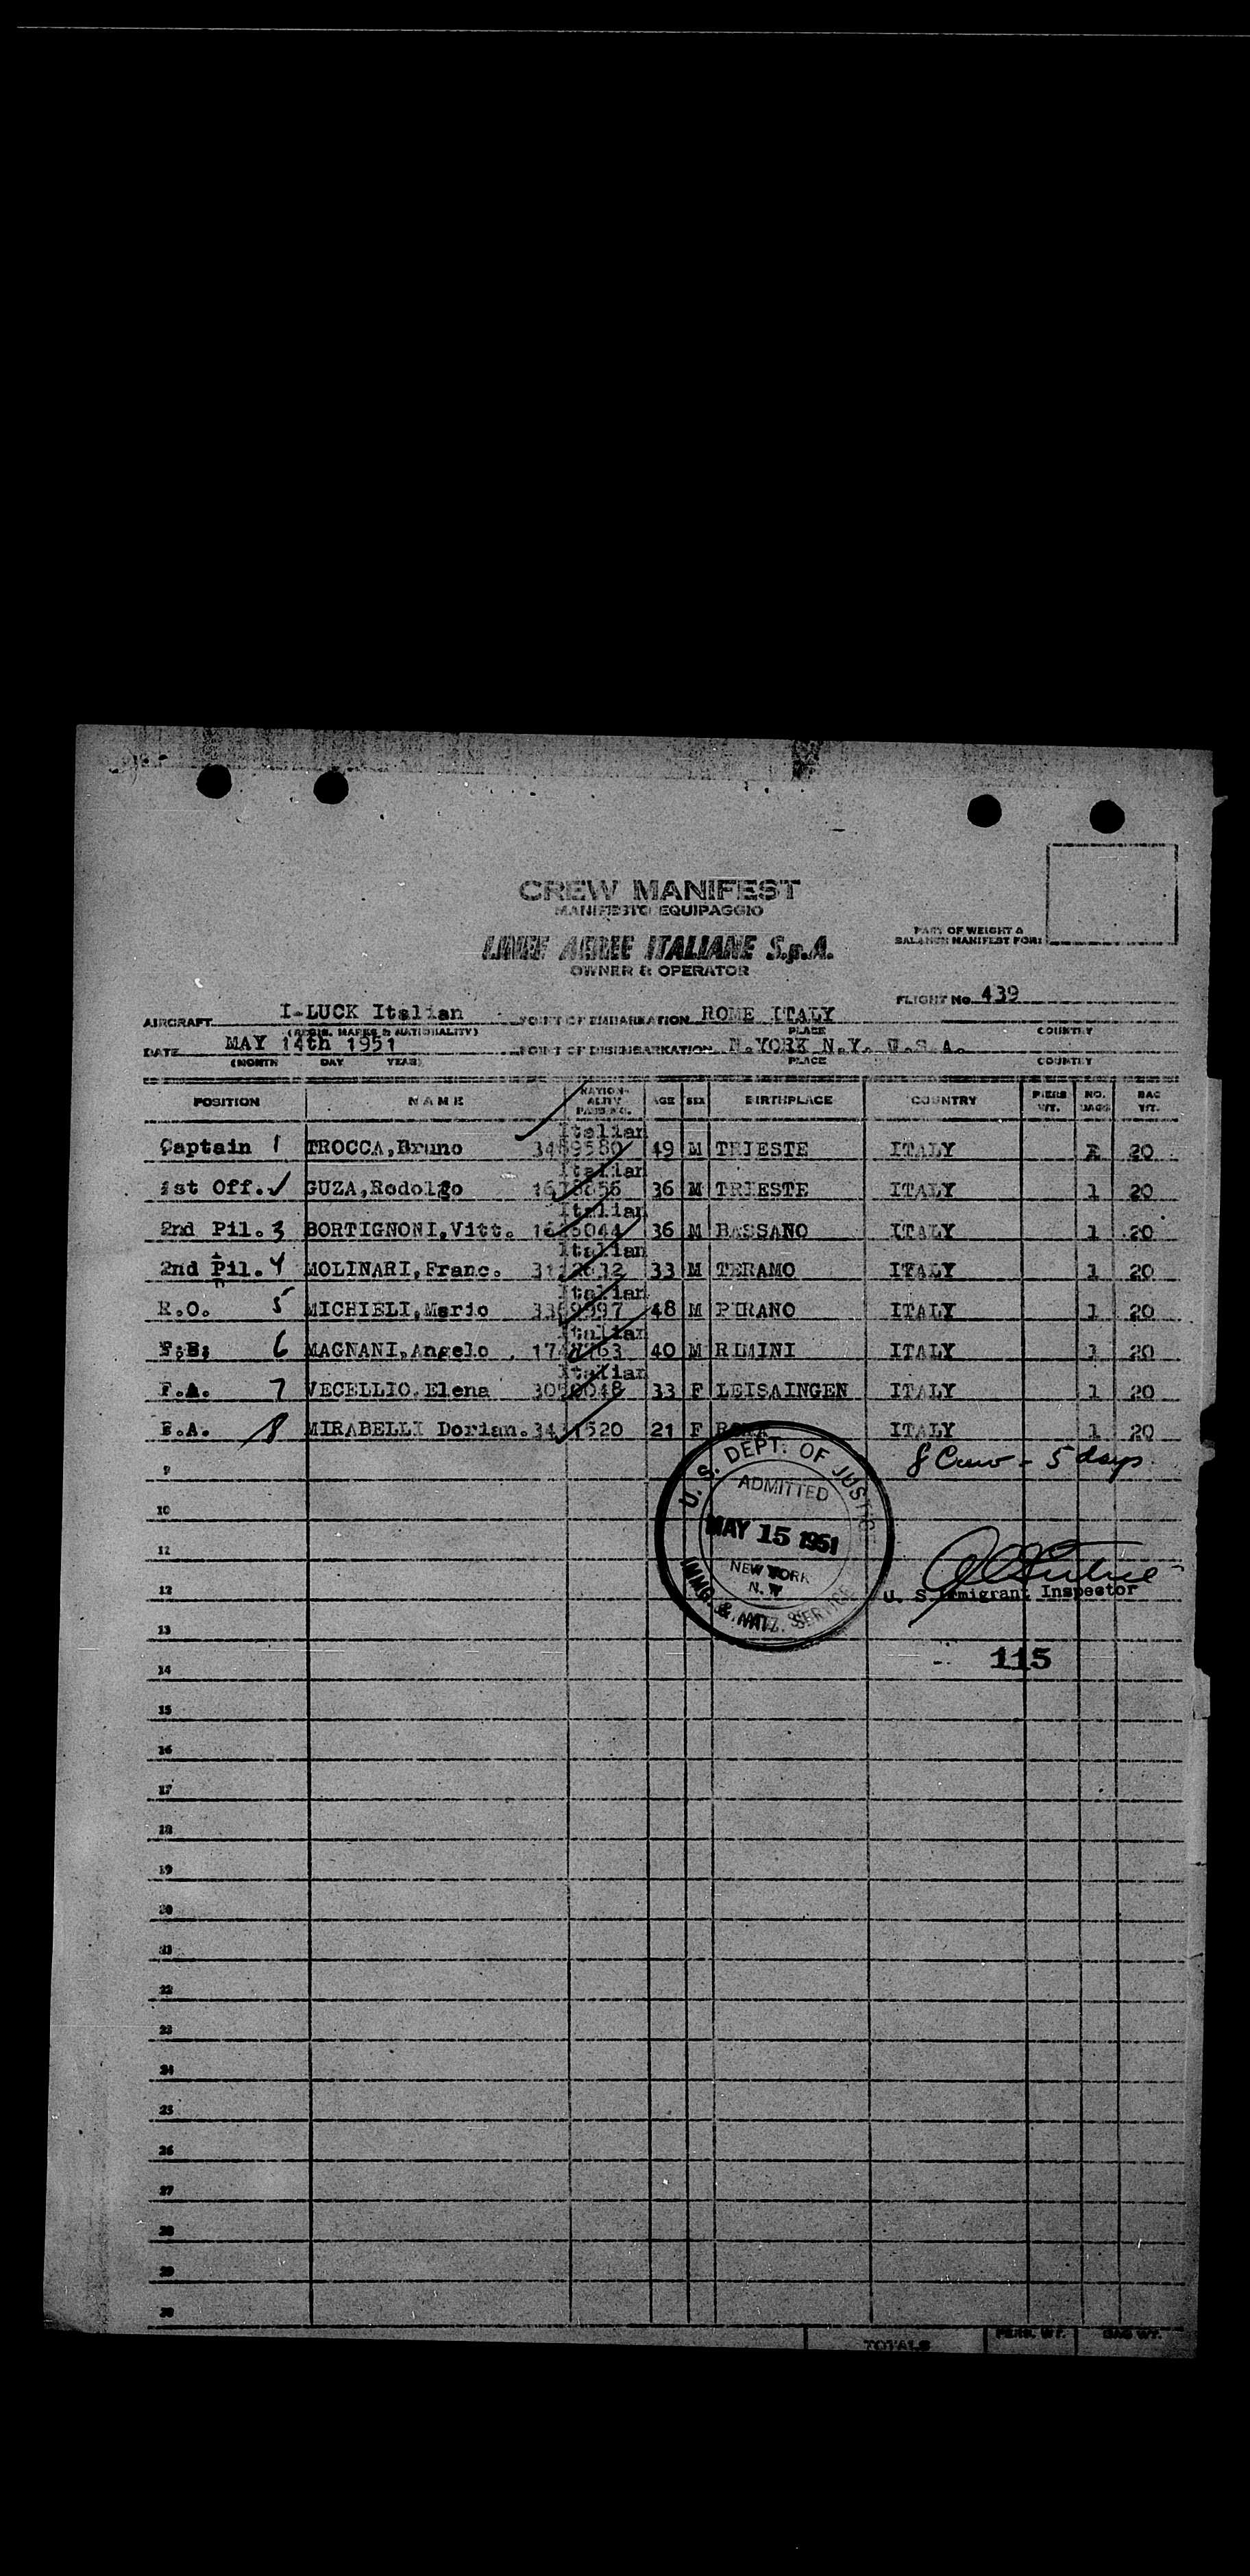 CREW MANIFEST
MANIFESTO EQUIPAGGIO
LINEE AEREE ITALIANE S.p.A.
OWNER & OPERATOR
PART OF WEIGHT &
BALANCE MANIFEST FOR:
FLIGHT No. 439
AIRCRAFT I-LUCK Italian POINT OF EMBARKATION ROME ITALY
(REGIS. MARKS & NATIONALITY) PLACE COUNTRY
DATE MAY 14th 1951 POINT OF DISEMBARKATION N.YORK N.Y. U.S.A.
(MONTH DAY YEAR) PLACE COUNTRY
POSITION NAME NATION-ALITY PASS. NO. AGE SEX BIRTHPLACE COUNTRY PERS WT. NO. BAGS BAG WT.
Italian
Captain 1 TROCCA,Bruno 49 M TRIESTE ITALY 20
Italian
1st Off. GUZA,Rodolgo 36 M TRIESTE ITALY 1 20
Italian
2nd Pil. 3 BORTIGNONI,Vitt. 36 M BASSANO ITALY 1 20
Italian
2nd Pil. 4 MOLINARI,Franc. 33 M TERAMO ITALY 1 20
Italian
R.O. 5 MICHIELI,Mario 48 M PIRANO ITALY 1 20
Italian
6 MAGNANI,Angelo 40 M RIMINI ITALY 1 20
Italian
F.A. 7 VECELLIO,Elena 33 F LEISAINGEN ITALY 1 20
F.A. 8 MIRABELLI Dorian. 21 F ROMA ITALY 1 20
8 Crew - 5 days
9
10
11
12
13
14
15
16
17
18
19
20
21
22
23
24
25
26
27
28
29
30
U. S. DEPT. OF JUSTICE
ADMITTED
MAY 15 1951
NEW YORK
N. Y.
IMMG. & NATZ. SERVICE
U. S. Immigrant Inspector
115
TOTALS PERS. WT. BAG WT.